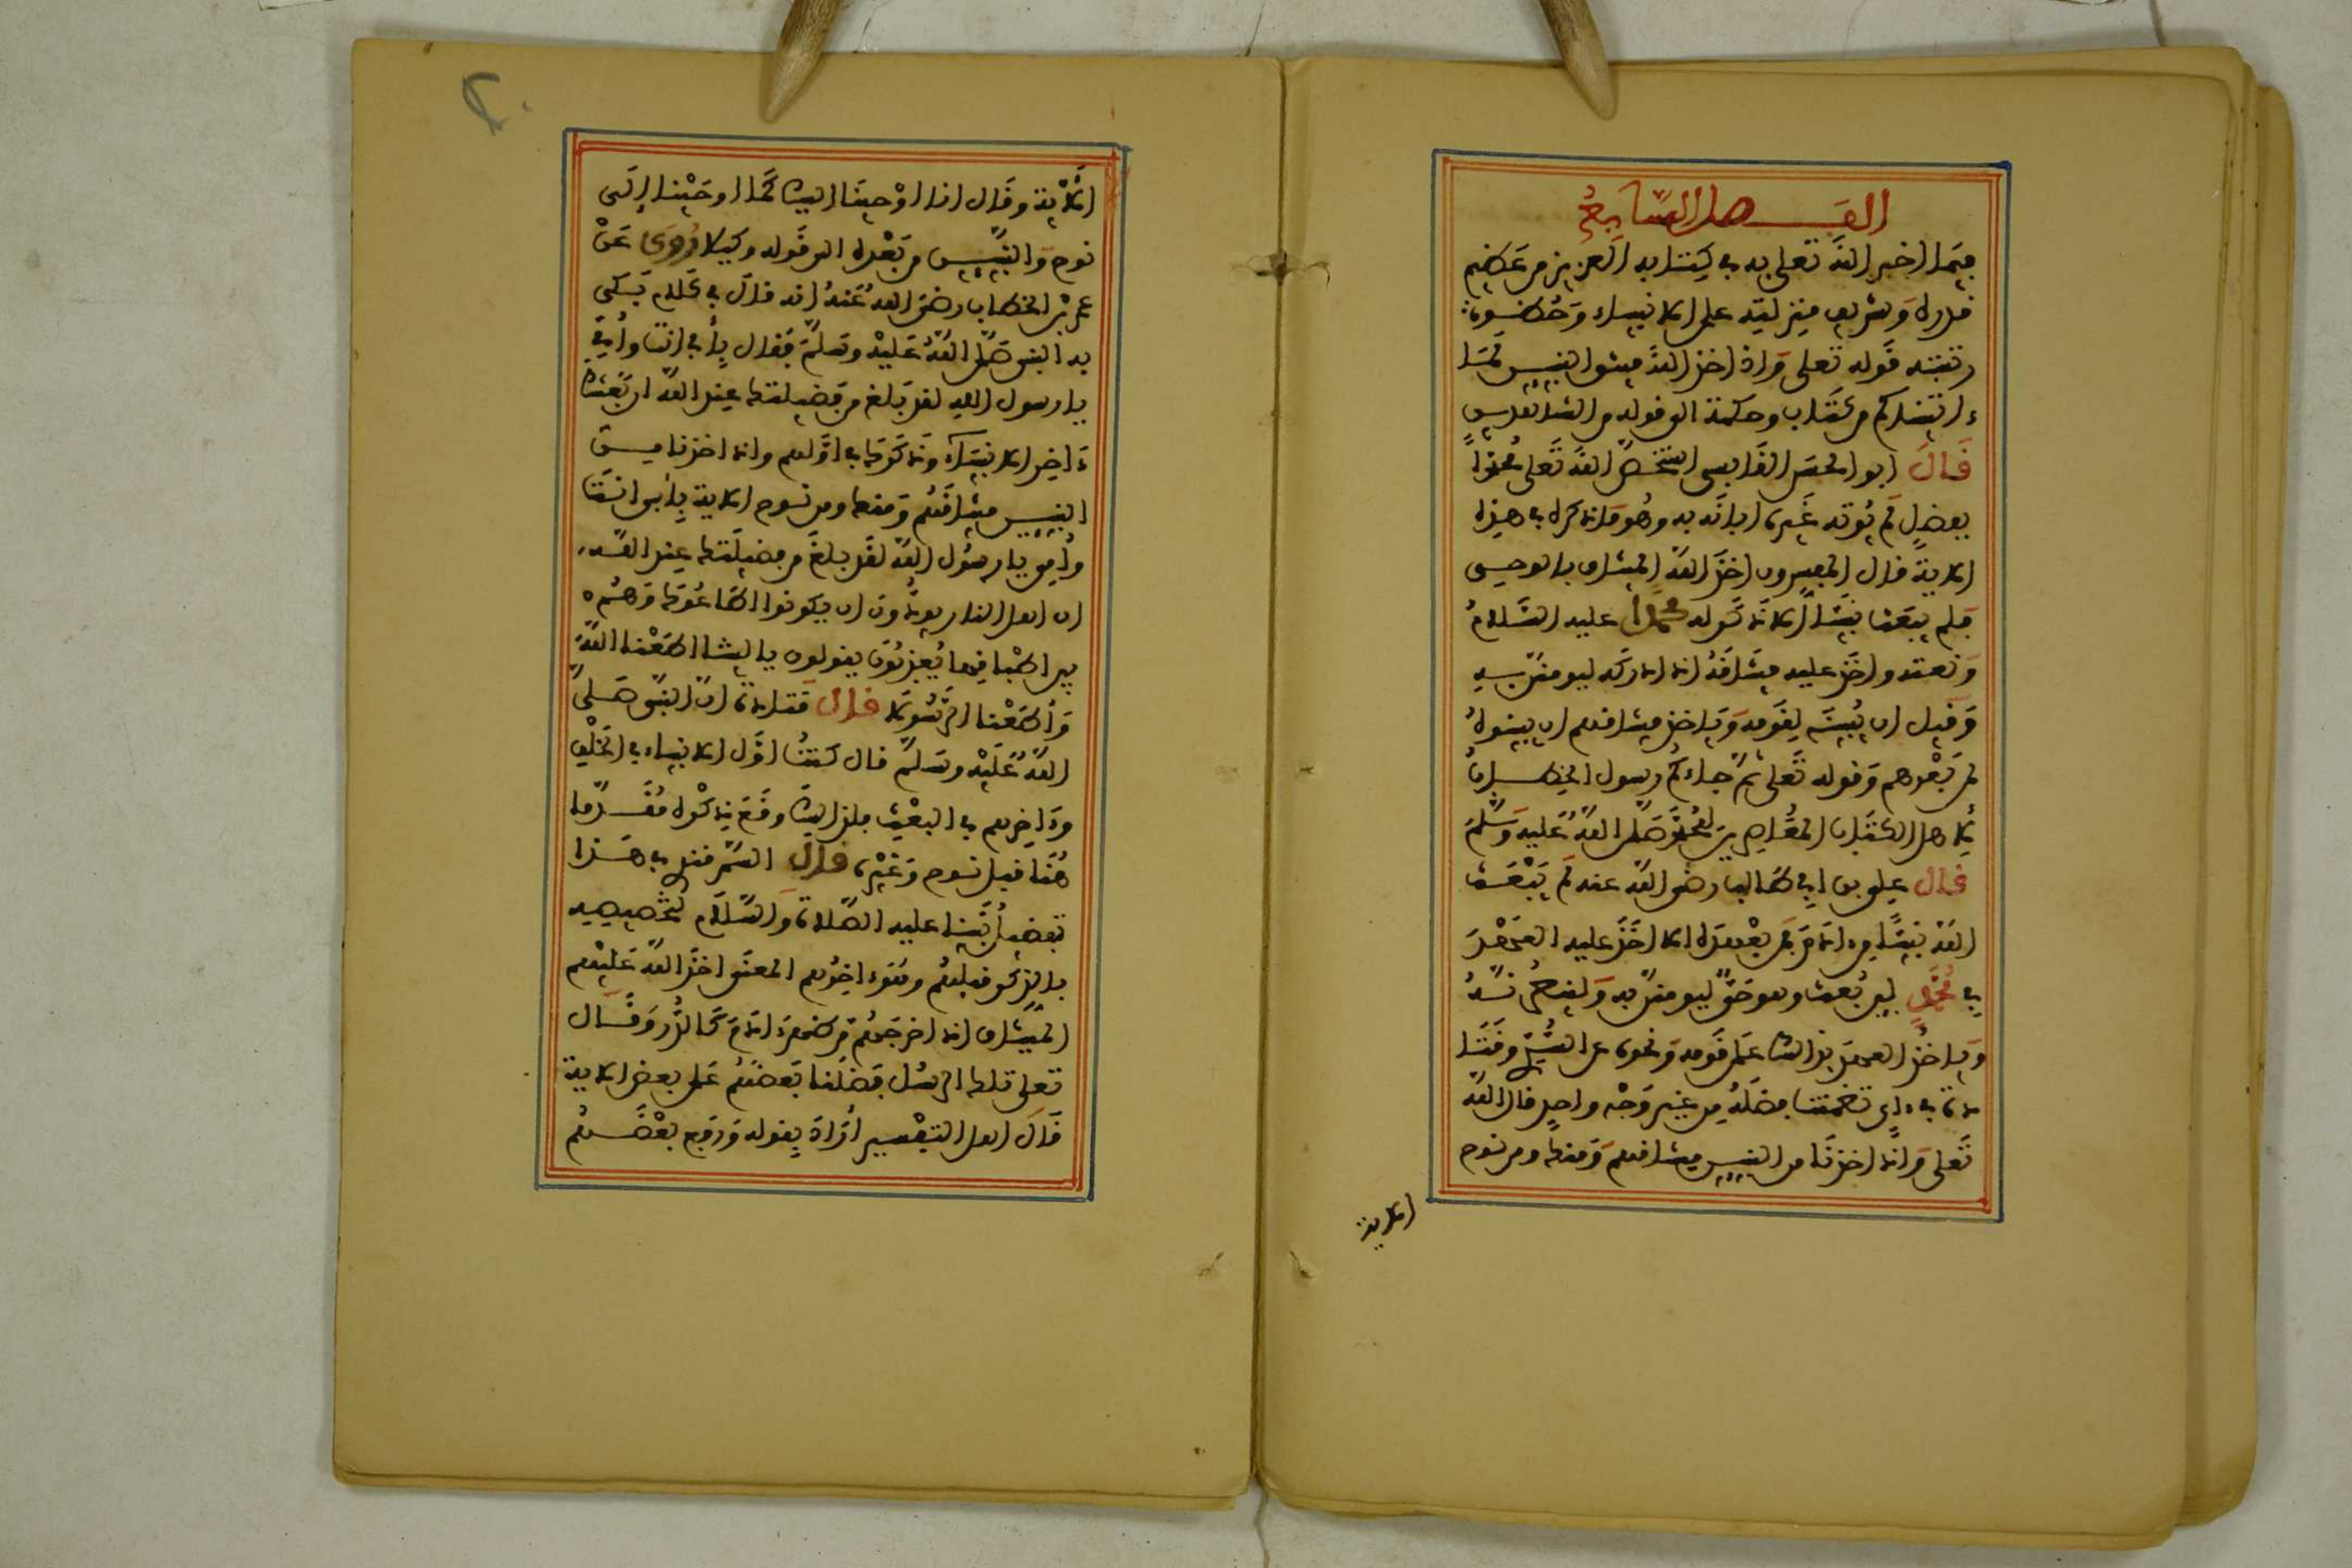 الفصل السابع
فيما اخبر الله تعلى به في كتابه العزيز من عظيم
قدره وشريف منزلته على الانبياء وحظوة
رتبته قوله تعلى واذ اخذ الله ميثق النبيين لما
ءاتيتكم من كتاب وحكمة الى قوله من الشاهدين
قال ابو الحسن القابسي استخص الله تعلى محمدا
بفضل لم يوته غيره ابانه به وهو ما ذكره في هذه
الاية قال المفسرون اخذ الله الميثاق بالوحي
فلم يبعث نبيا الا ذكر له محمدا عليه السلام
ونعته واخذ عليه ميثاقه ان ادركه ليومنن به
وقيل ان يبينه لقومه وياخذ ميثاقهم ان يبينوه
لمن بعدهم وقوله تعلى ثم جاءكم رسول الخطاب
لاهل الكتاب المعاصرين لمحمد صلى الله عليه وسلم
قال علي بن ابي طالب رضي الله عنه لم يبعث
الله نبيا من ءادم فمن بعده الا اخذ عليه العهد
في محمد لين بعث وهو حي ليومنن به ولينصرنه
وياخذ العهد بذلك على قومه ونحوه عن السدي وقتا
دة في ءاي تضمنت فضله من غير وجه واحد قال الله
تعلى واذ اخذنا من النبيين ميثاقهم ومنك ومن نوح
الاية
٢٠
الاية وقال انا اوحينا اليك كما اوحينا الى
نوح والنبيين من بعده الى قوله وكيلا روي عن
عمر بن الخطاب رضي الله عنه انه قال في كلام بكى
به النبي صلى الله عليه وسلم فقال بأبي انت وأمي
يا رسول الله لقد بلغ من فضيلتك عند الله ان بعثك
ءاخر الانبياء وذكرك في اولهم واذ اخذنا من
النبيين ميثاقهم ومنك ومن نوح الاية بأبي انت
وأمي يا رسول الله لقد بلغ من فضيلتك عند الله
ان اهل النار يودون ان يكونوا اطاعوك وهم
بين اطباقها يعذبون يقولون يا ليتنا اطعنا الله
وأطعنا الرسولا قال قتادة ان النبي صلى
الله عليه وسلم قال كنت اول الانبياء في الخلق
وءاخرهم في البعث فلذلك وقع ذكره مقدما
هنا قبل نوح وغيره قال السمرقندي في هذا
تفضيل نبينا عليه الصلاة والسلام لتخصيصه
بالذكر قبلهم وهو ءاخرهم المعنى اخذ الله عليهم
الميثاق اذ اخرجهم من ظهر ءادم كالذر وقال
تعلى تلك الرسل فضلنا بعضهم على بعض الاية
قال اهل التفسير أراد بقوله ورفع بعضهم